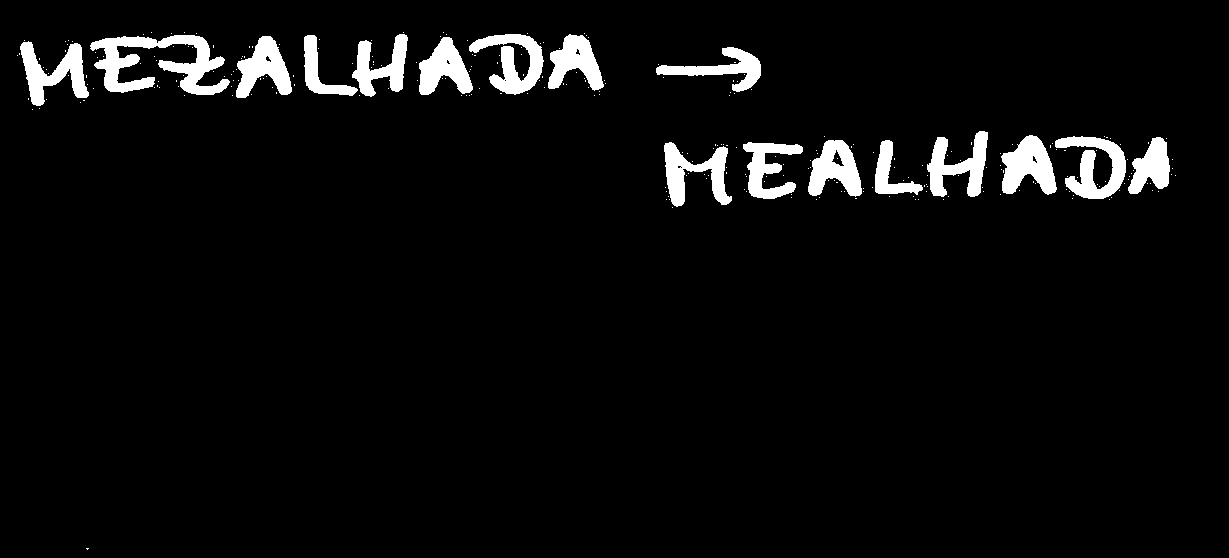 MEZALHADA →
MEALHADA